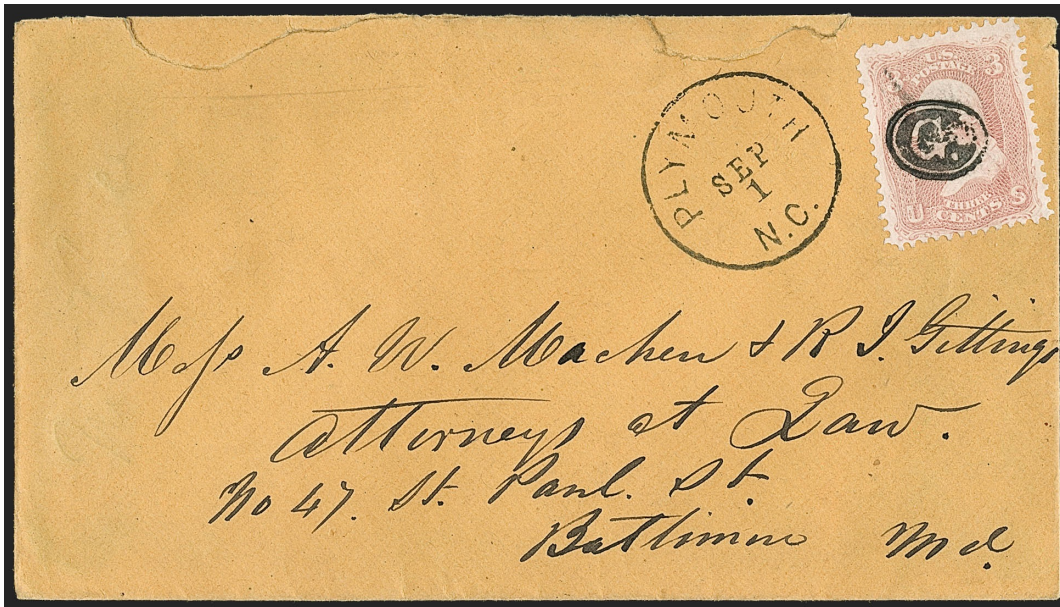 PLYMOUTH
SEP
1
N.C.
3 U.S. POSTAGE 3
U THREE CENTS S
Mess A. W. Machen & R J. Gittings
Attorneys at Law.
No 47. St. Paul. St.
Baltimore Md.